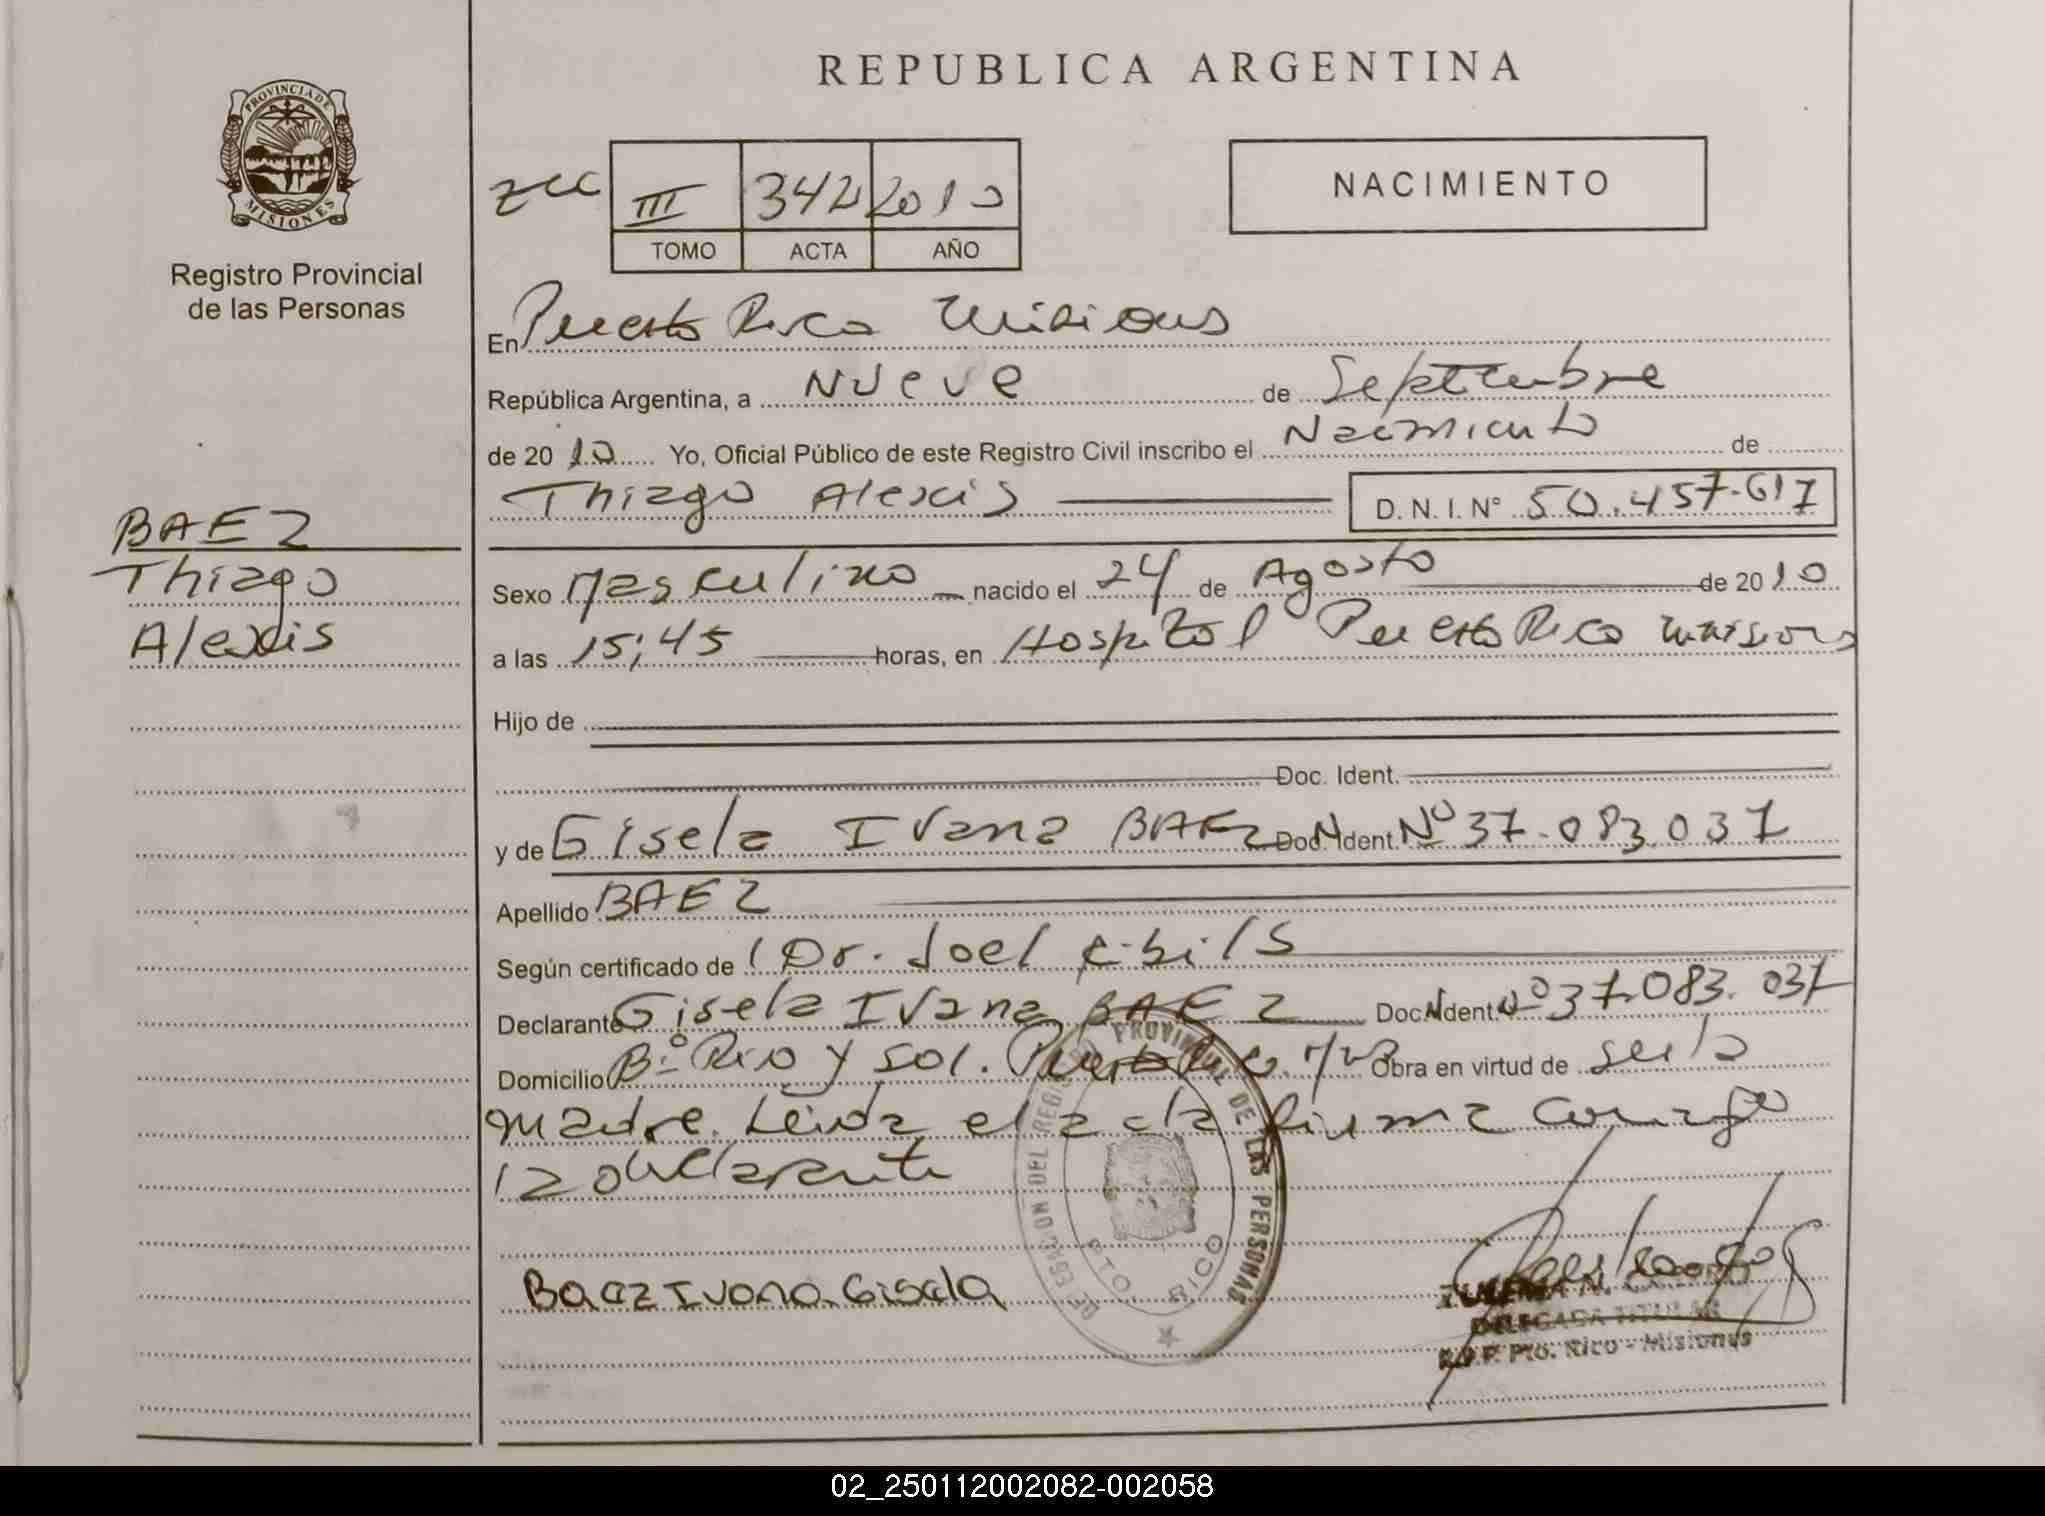 REPUBLICA ARGENTINA
PROVINCIA DE MISIONES
Registro Provincial
de las Personas
III 342 2010
TOMO ACTA AÑO
NACIMIENTO
En Puerto Rico Misiones
República Argentina, a Nueve de Septiembre
de 2010 Yo, Oficial Público de este Registro Civil inscribo el Nacimiento de
Thiago Alexis D. N. I. N° 50.457.617
BAEZ
Thiago
Alexis
Sexo Masculino nacido el 24 de Agosto de 2010
a las 15:45 horas, en Hospital Puerto Rico Misiones
Hijo de
Doc. Ident.
y de Gisela Ivana BAEZ Doc. Ident. Nº 37.083.037
Apellido BAEZ
Según certificado de Dr. Joel
Declarante Gisela Ivana BAEZ Doc. Ident. Nº 37.083.037
Domicilio Bº Rio y Sol. Puerto Rico. Obra en virtud de ser la
madre. Leida el acta firma conmigo
la declarante
DELEGACION DEL REGISTRO PROVINCIAL DE LAS PERSONAS
PTO. RICO
Baez Ivana Gisela
ZULEMA N.
DELEGADA TITULAR
R.P.P. Pto. Rico - Misiones
02_250112002082-002058